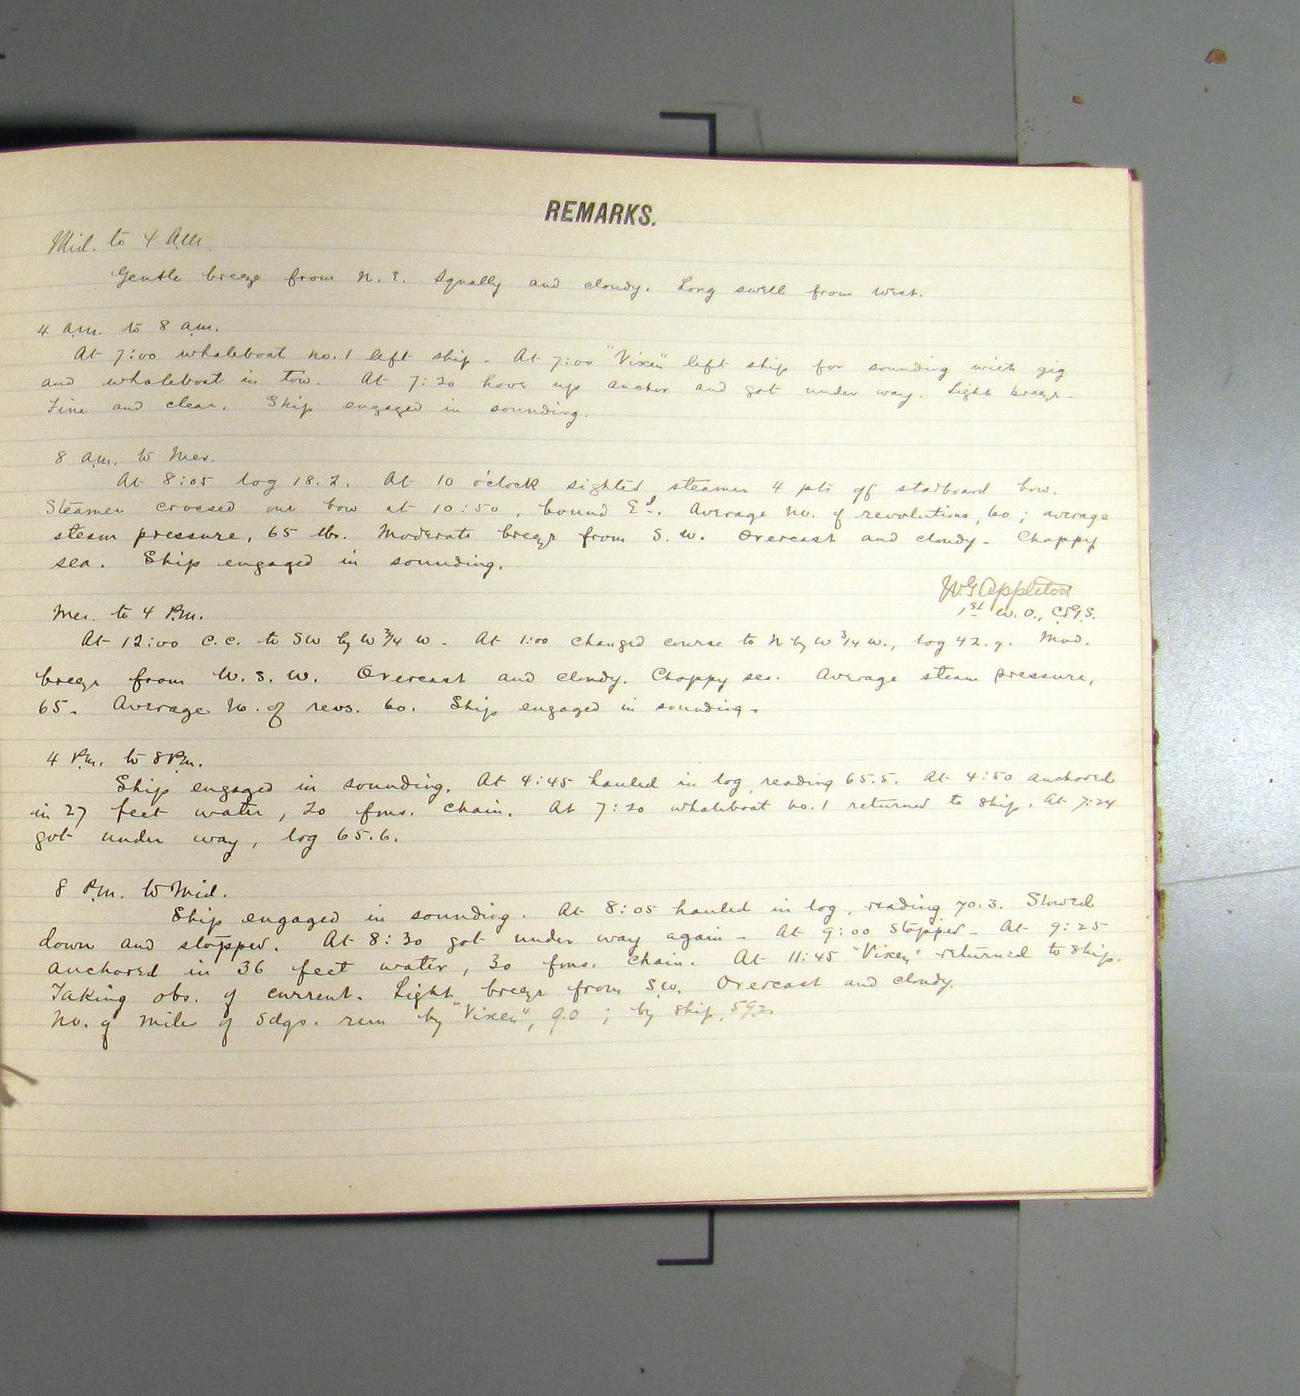 REMARKS.
Mid. to 4 A.M.
Gentle breeze from N. E. Squally and cloudy. Long swell from West.
4 a.m. to 8 a.m.
At 7:00 whaleboat No. 1 left ship. At 7:00 "Vixen" left ship for sounding with gig
and whaleboat in tow. At 7:20 hove up anchor and got under way. Light breeze.
Fine and clear. Ship engaged in sounding.
8 a.m. to Mer.
At 8:05 log 18.2. At 10 o'clock sighted steamer 4 pts off starboard bow.
Steamer crossed our bow at 10:50, bound Ed. Average No. of revolutions, 60; average
steam pressure, 65 lbs. Moderate breeze from S. W. Overcast and cloudy. Choppy
sea. Ship engaged in sounding.
W G Appleton
1st W. O., C.&G.S.
Mer. to 4 P.M.
At 12:00 C.C. to SW by W 3/4 W. At 1:00 changed course to N by W 3/4 W., log 42.9. Mod.
breeze from W. S. W. Overcast and cloudy. Choppy sea. Average steam pressure,
65. Average No. of revs. 60. Ship engaged in sounding.
4 P.M. to 8 P.M.
Ship engaged in sounding. At 4:45 hauled in log, reading 65.5. At 4:50 anchored
in 27 feet water, 20 fms. chain. At 7:20 whaleboat No. 1 returned to ship. At 7:24
got under way, log 65.6.
8 P.M. to Mid.
Ship engaged in sounding. At 8:05 hauled in log, reading 70.3. Slowed
down and stopped. At 8:30 got under way again. At 9:00 stopped. At 9:25
anchored in 36 feet water, 30 fms. chain. At 11:45 "Vixen" returned to ship.
Taking obs. of current. Light breeze from S.W. Overcast and cloudy.
No. of miles of sdgs. run by "Vixen", 9.0; by ship,